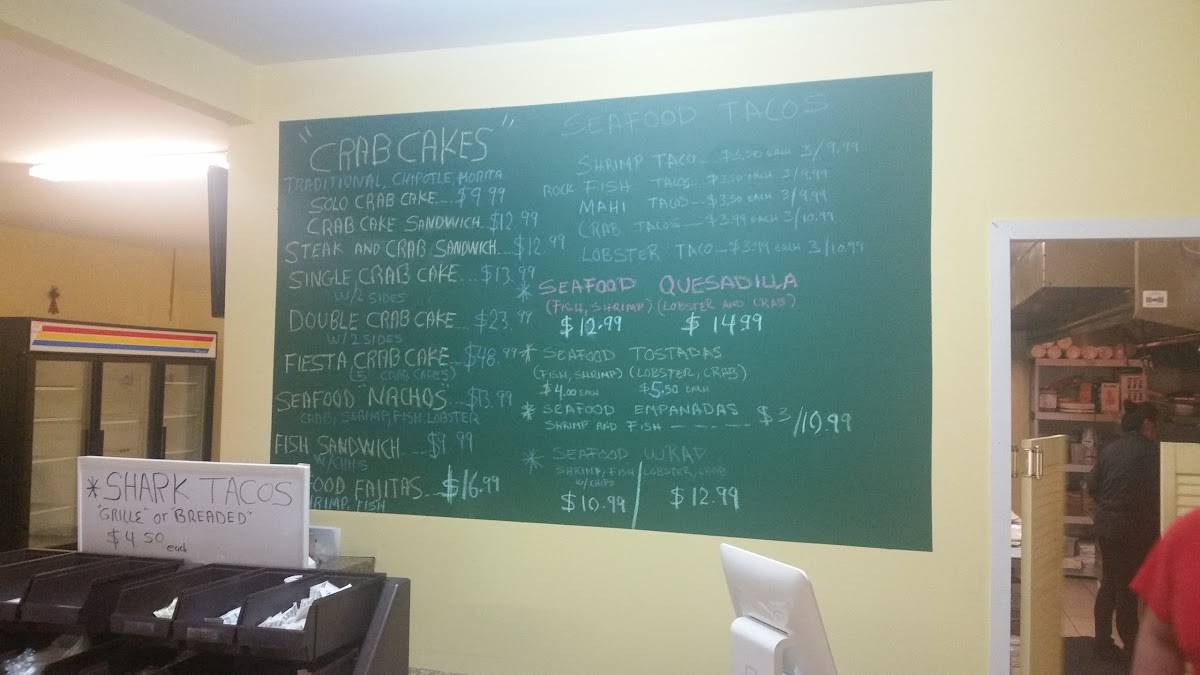 "CRAB CAKES"
TRADITIONAL, CHIPOTLE, MORITA
SOLO CRAB CAKE....$9.99
CRAB CAKE SANDWICH..$12.99
STEAK AND CRAB SANDWICH....$12.99
SINGLE CRAB CAKE....$13.99
W/2 SIDES
DOUBLE CRAB CAKE...$23.99
W/2 SIDES
FIESTA CRAB CAKE...$48.99
(5 CRAB CAKES)
SEAFOOD "NACHOS"...$13.99
CRAB, SHRIMP, FISH, LOBSTER
FISH SANDWICH....$9.99
W/CHIPS
FOOD FAJITAS...$16.99
RIMP, FISH
SEAFOOD TACOS
SHRIMP TACO....$3.50 EACH 3/9.99
ROCK FISH TACOS...$3.50 EACH 3/9.99
MAHI TACO - $3.50 EACH 3/9.99
CRAB TACOS - $3.99 EACH 3/10.99
LOBSTER TACO...$3.99 EACH 3/10.99
* SEAFOOD QUESADILLA
(FISH, SHRIMP) (LOBSTER AND CRAB)
$12.99 $14.99
* SEAFOOD TOSTADAS
(FISH, SHRIMP) (LOBSTER, CRAB)
$4.00 EACH $5.50 EACH
* SEAFOOD EMPANADAS $3/10.99
SHRIMP AND FISH - - - - -
* SEAFOOD WRAP
SHRIMP, FISH LOBSTER, CRAB
W/CHIPS
$10.99 $12.99
*SHARK TACOS
"GRILLE" or "BREADED"
$4.50 each